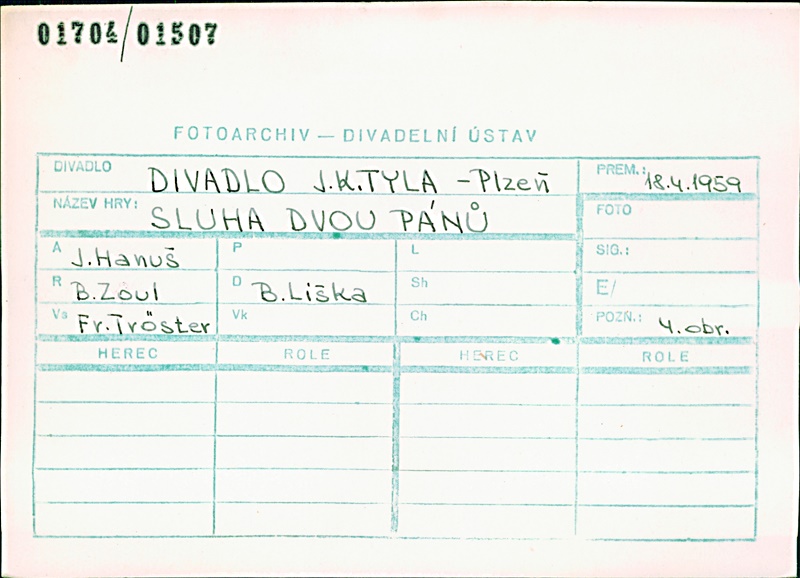 01704/01507
FOTOARCHIV — DIVADELNÍ ÚSTAV
DIVADLO DIVADLO J.K.TYLA - Plzeň PREM.: 18.4.1959
NÁZEV HRY: SLUHA DVOU PÁNŮ FOTO
A J.Hanuš P L SIG.:
R B.Zoul D B.Liška Sh E/
Vs Fr.Tröster Vk Ch POZN.: 4.obr.
HEREC ROLE HEREC ROLE